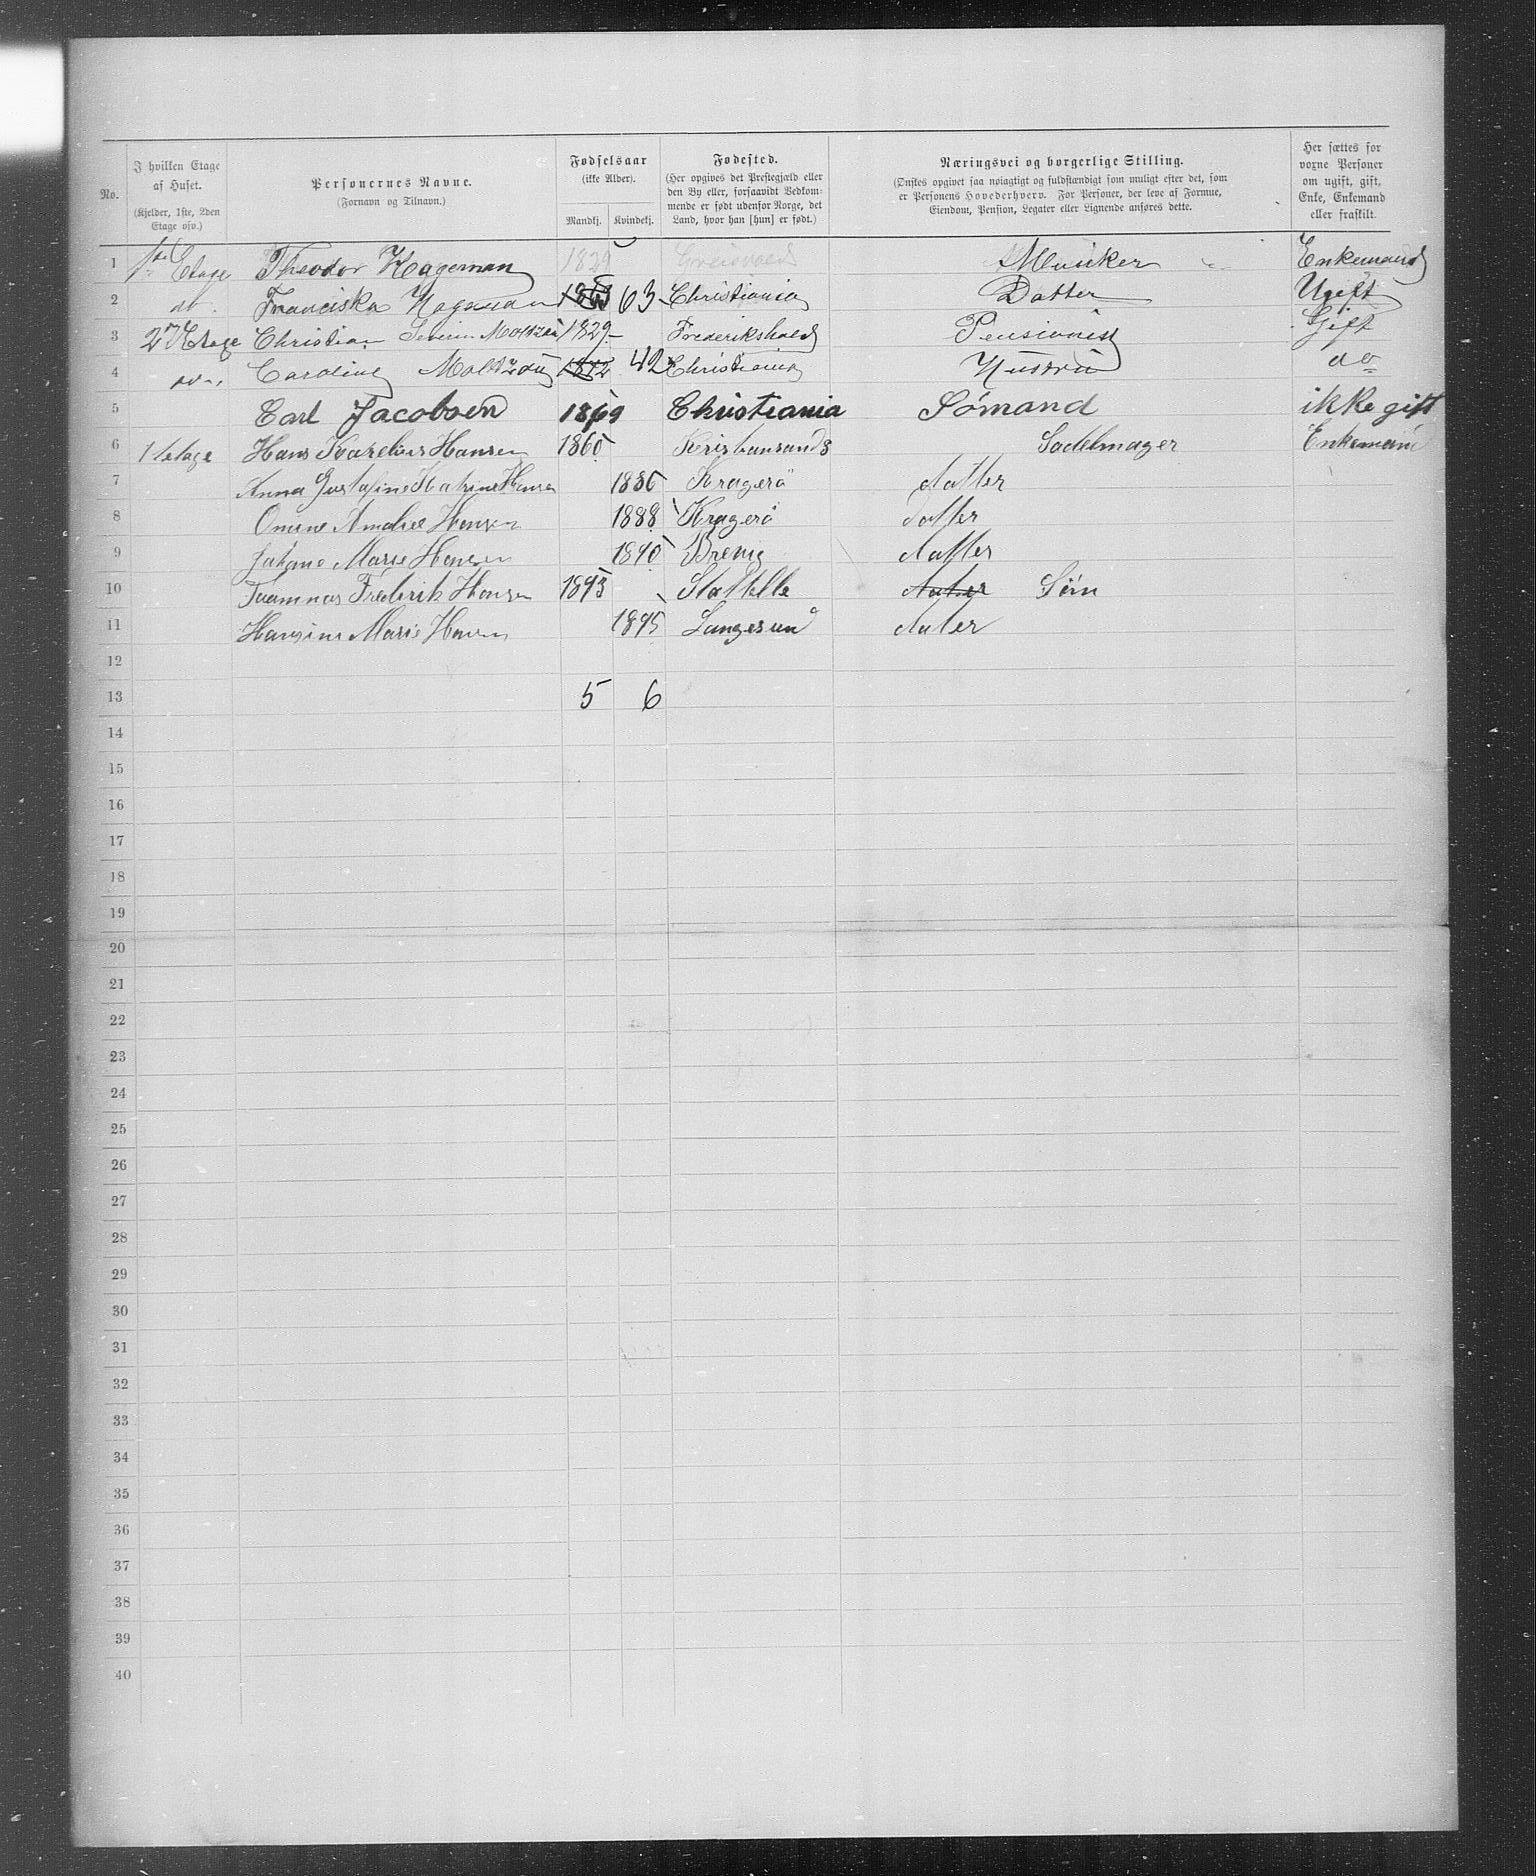 No.
I hvilken Etage af Huset. (Kjelder, 1ste, 2den Etage osv.)
Personernes Navne. (Fornavn og Tilnavn.)
Fødselsaar (ikke Alder). Mandkj. Kvindekj.
Fødested. (Her opgives det Prestegjæld eller den By eller, forsaavidt Vedkommende er født udenfor Norge, det Land, hvor han [hun] er født.)
Næringsvei og borgerlige Stilling. (Ønskes opgivet saa nøiagtigt og fuldstændigt som muligt efter det, som er Personens Hovederhverv. For Personer, der leve af Formue, Eiendom, Pension, Legater eller Lignende anføres dette.
Her sættes for voxne Personer om ugift, gift, Enke, Enkemand eller fraskilt.
1 1ste Etage Theodor Hageman 1829 Greisvald Musiker Enkemand
2 do. Franciska Hageman 1863 63 Christiania Datter Ugift
3 2n Etage Christian Severin Moltzau 1829 Frederikshald Pensionist Gift
4 do. Caroline Moltzau 1842 42 Christiania Hustru do
5 Carl Jacobsen 1869 Christiania Sømand ikke gift
6 1 etage Hans Hansen 1860 Kristiansands Sadelmager Enkemann
7 Anna Gustafine Katrine Hansen 1886 Kragerö datter
8 Amalie Hansen 1888 Kragerö datter
9 Marie Hansen 1890 Brevig datter
10 Frederik Hansen 1893 Stattelle dater Sön
11 Hansine Marie Hansen 1895 Langesund dater
12
13 5 6
14
15
16
17
18
19
20
21
22
23
24
25
26
27
28
29
30
31
32
33
34
35
36
37
38
39
40